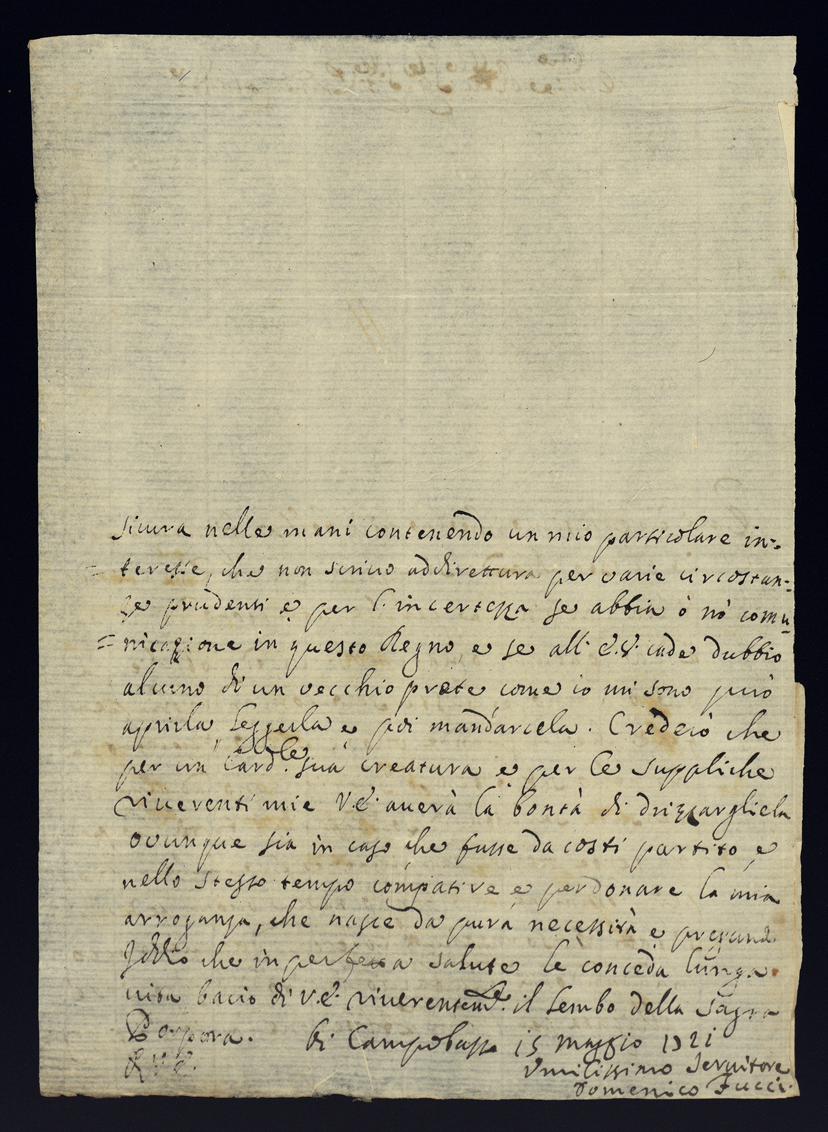 sicura nelle mani contenendo un mio particolare in=
teresse, che non scrivo addirettura per varie circostan=
ze prudenti e per l'incertezza se abbia ò nò comu=
nicazione in questo Regno, e se all' E.V. cade dubbio
alcuno di un vecchio prete come io mi sono può
aprirla, leggerla e poi mandarcela. Crederò che
per un Card.le sua creatura e per le suppliche
riverenti mie V.E. averà la bontà di drizzargliela
ovunque sia in caso che fusse da costì partito, e
nello stesso tempo compatire e perdonare la mia
arroganza, che nasce da pura necessità e pregand
Iddio che in perfetta salute le conceda lunga
vita bacio di V.E. riverentem.e il lembo della Sagra
Porpora. Di Campobasso 15 maggio 1721
Umilissimo Servitore
Domenico Fucci.